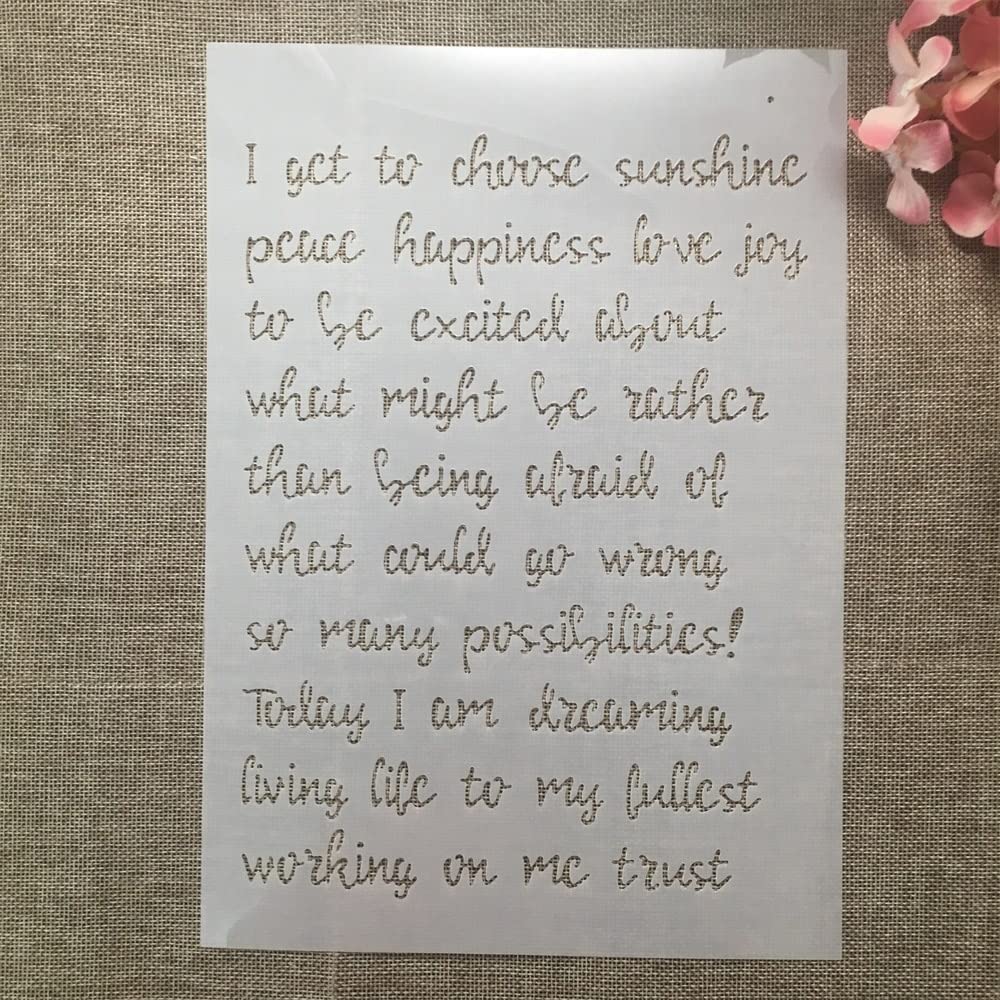 I get to choose sunshine
peace happiness love joy
to be excited about
what might be rather
than being afraid of
what could go wrong
so many possibilities!
Today I am dreaming
living life to my fullest
working on me trust